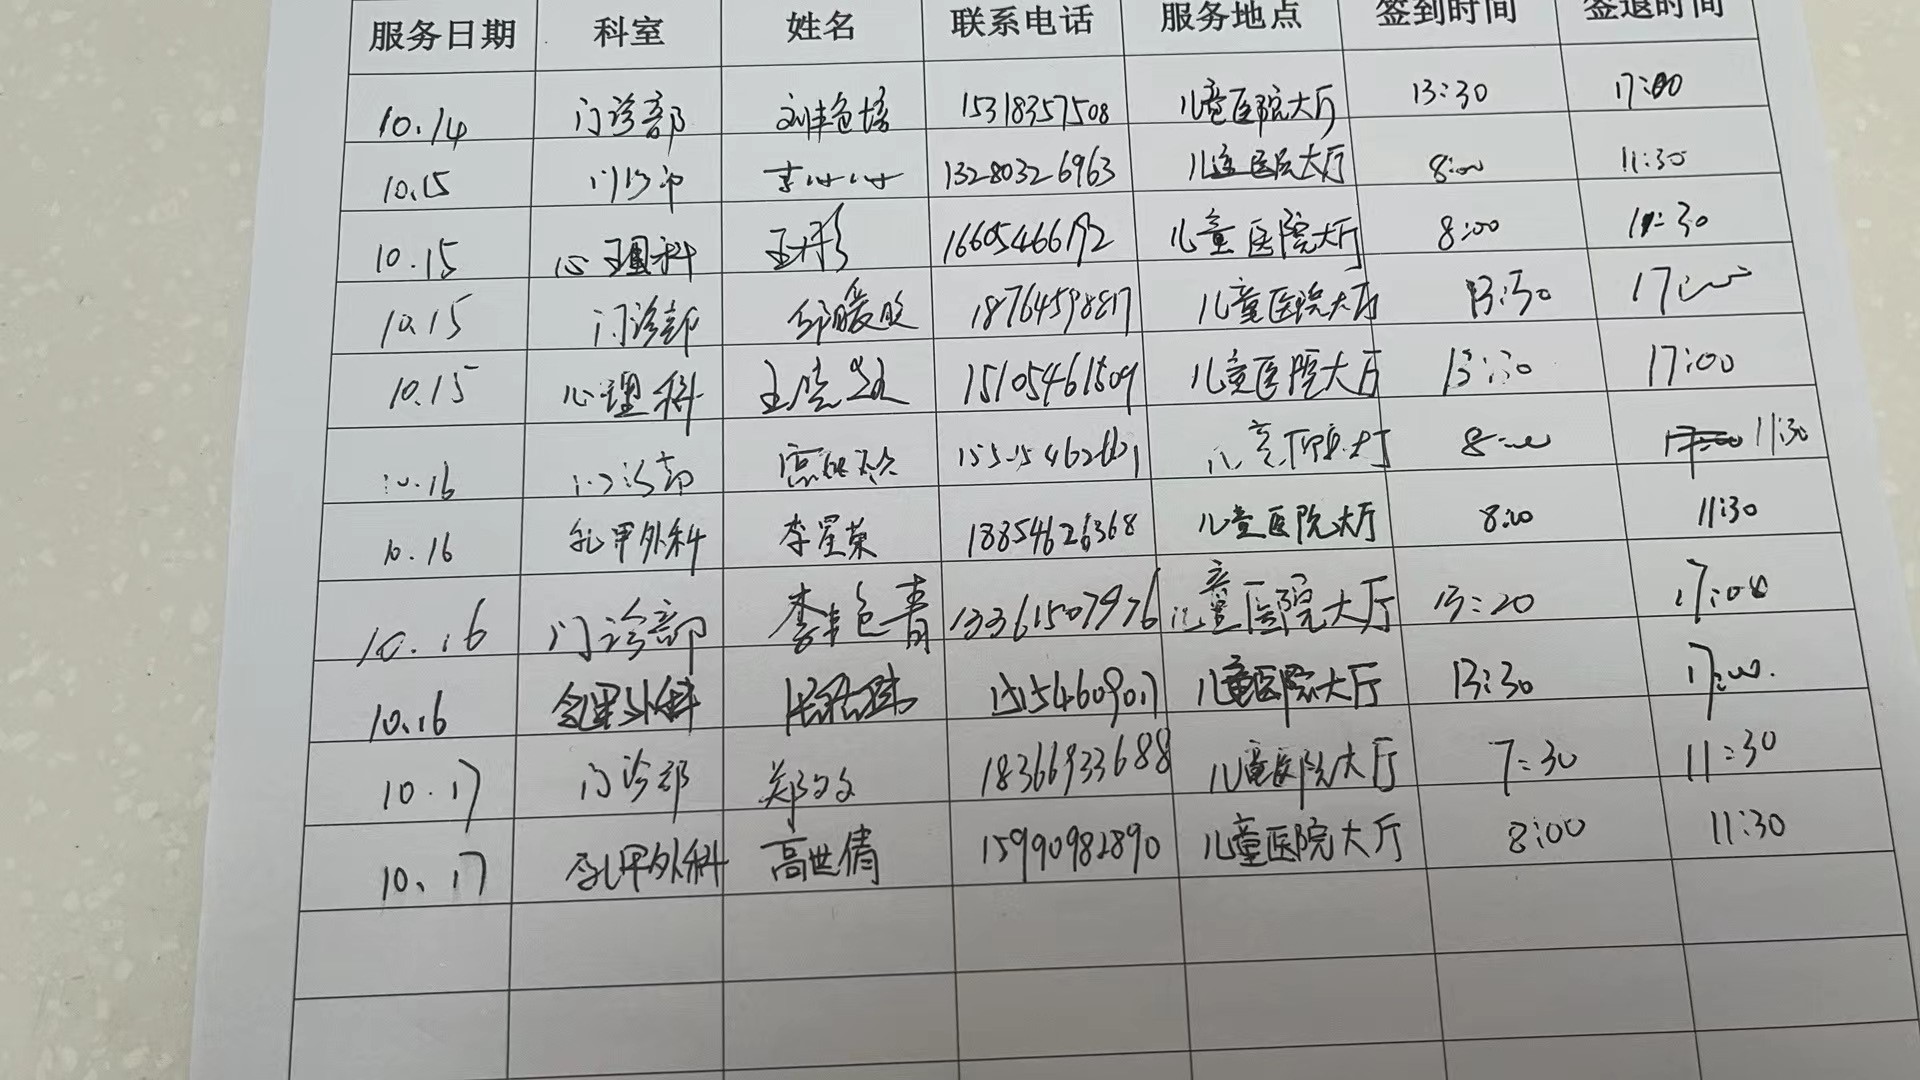 服务日期 科室 姓名 联系电话 服务地点 签到时间 签退时间
10.14 门诊部 刘艳培 15318357508 儿童医院大厅 13:30 17:00
10.15 门诊部 13280326963 儿童医院大厅 8:00 11:30
10.15 心理科 王彤 儿童医院大厅 8:00 11:30
10.15 门诊部 18764598817 儿童医院大厅 13:30 17:00
10.15 心理科 15105461809 儿童医院大厅 13:30 17:00
10.16 门诊部 儿童医院大厅 8:00 11:30
10.16 乳甲外科 李星荣 18854626368 儿童医院大厅 8:00 11:30
10.16 门诊部 李艳青 13361507976 儿童医院大厅 13:20 17:00
10.16 外科 15154609017 儿童医院大厅 13:30 17:00
10.17 门诊部 郑文文 18366933688 儿童医院大厅 7:30 11:30
10.17 乳甲外科 高世倩 15990982890 儿童医院大厅 8:00 11:30